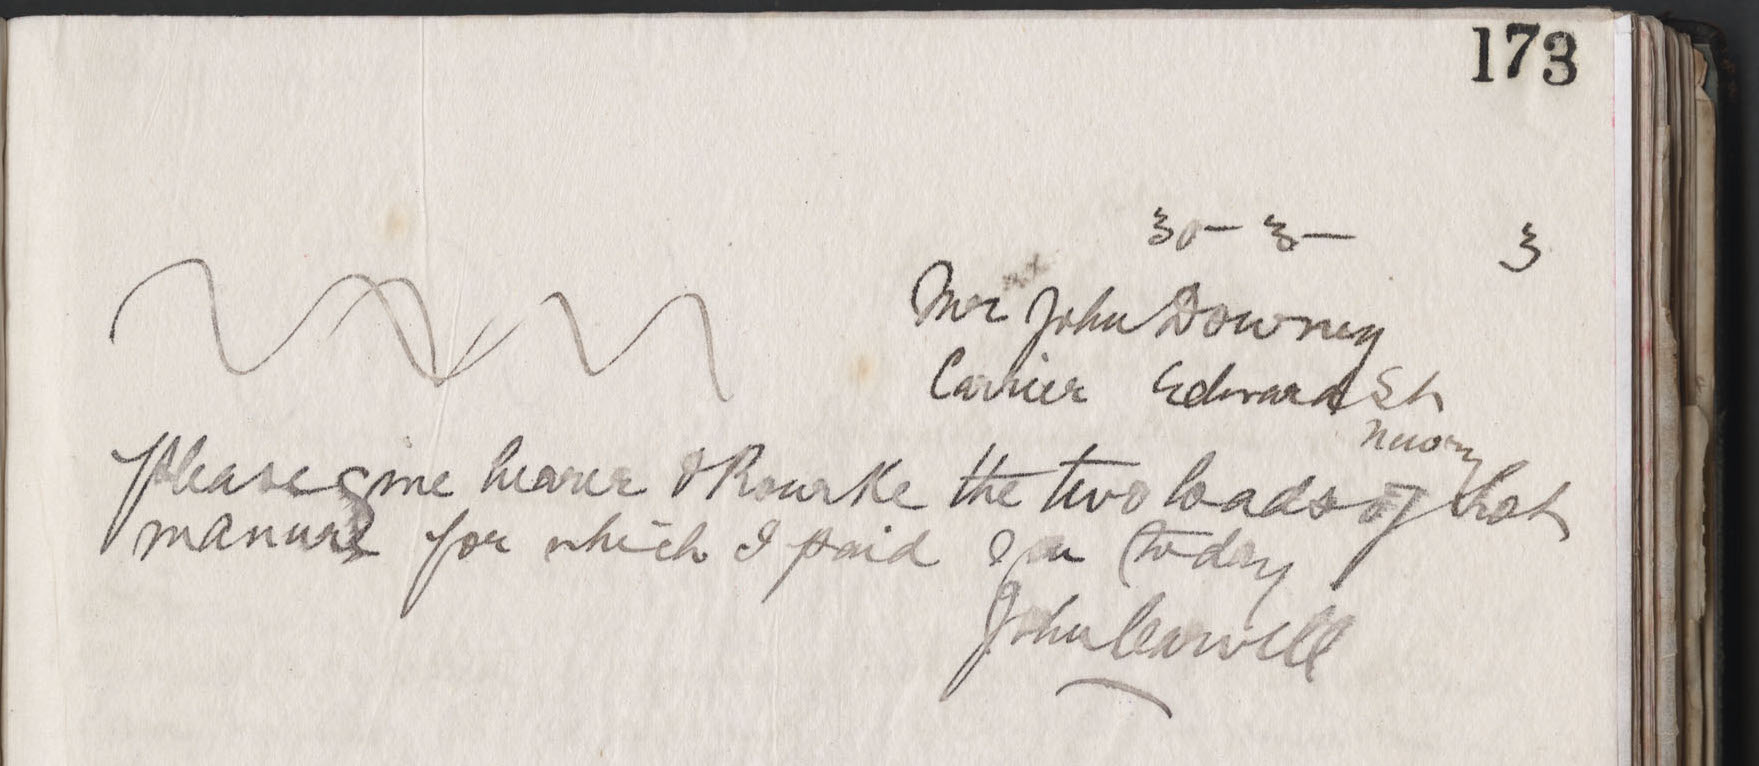 173
30-3- 3
Mr John Downey
Carrier Edward St
Newry
Please give bearer O Rourke the two loads of that
manure for which I paid you today
John Carvill